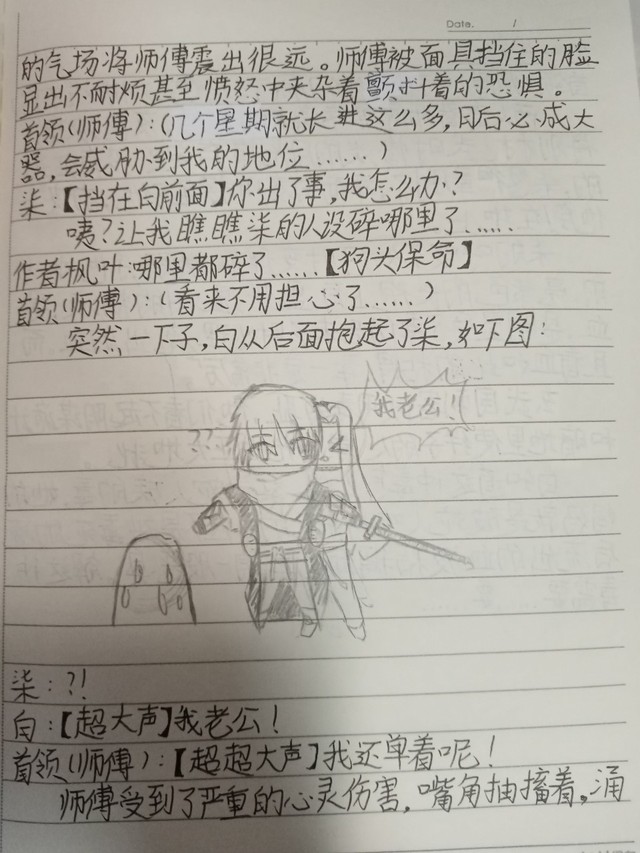 Date. /
的气场将师傅震出很远。师傅被面具挡住的脸
显出不耐烦甚至愤怒中夹杂着颤抖着的恐惧。
首领(师傅):(几个星期就长进这么多,日后必成大
器,会威胁到我的地位......)
柒:【挡在白前面】你出了事,我怎么办?
咦?让我瞧瞧柒的人设碎哪里了......
作者枫叶:哪里都碎了......【狗头保命】
首领(师傅):(看来不用担心了......)
突然一下子,白从后面抱起了柒,如下图:
我老公!
??
柒:?!
白:【超大声】我老公!
首领(师傅):【超超大声】我还单着呢!
师傅受到了严重的心灵伤害,嘴角抽搐着,涌